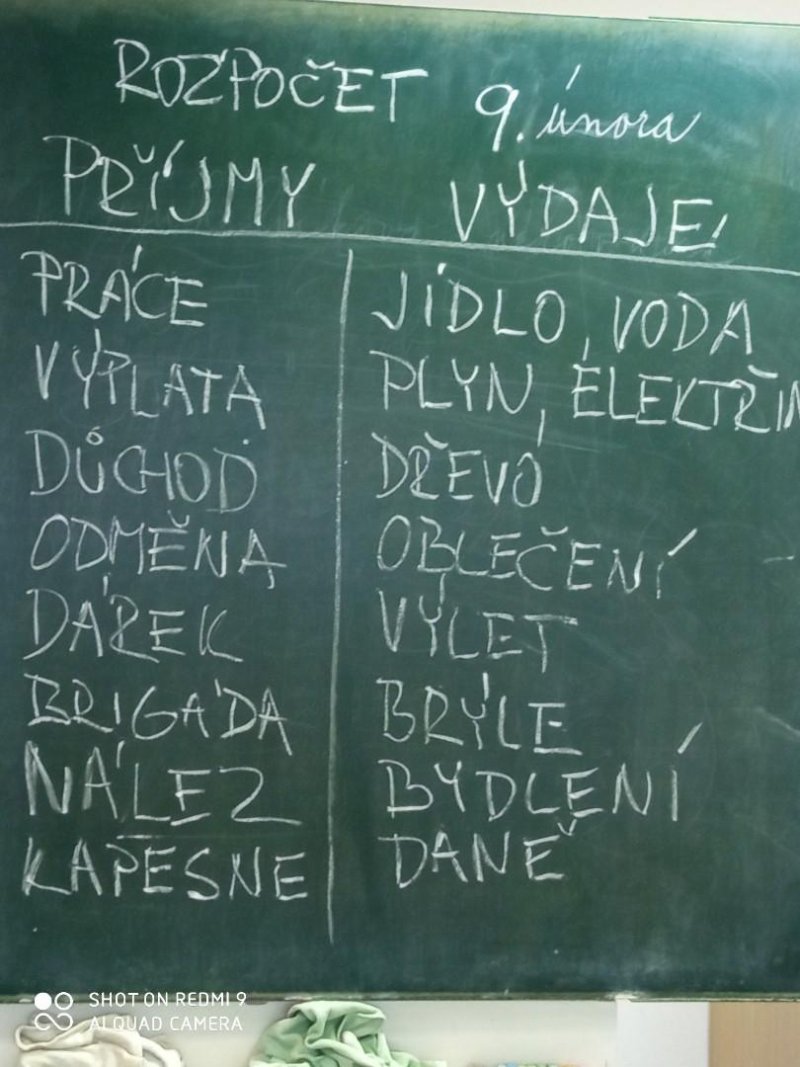 ROZPOČET 9. února
PŘÍJMY VÝDAJE!
PRÁCE JÍDLO, VODA
VÝPLATA PLYN, ELEKTŘIN
DŮCHOD DŘEVO
ODMĚNA OBLEČENÍ
DÁREK VÝLET
BRIGÁDA BRÝLE
NÁLEZ BYDLENÍ
KAPESNE DANĚ
SHOT ON REDMI 9
AI QUAD CAMERA